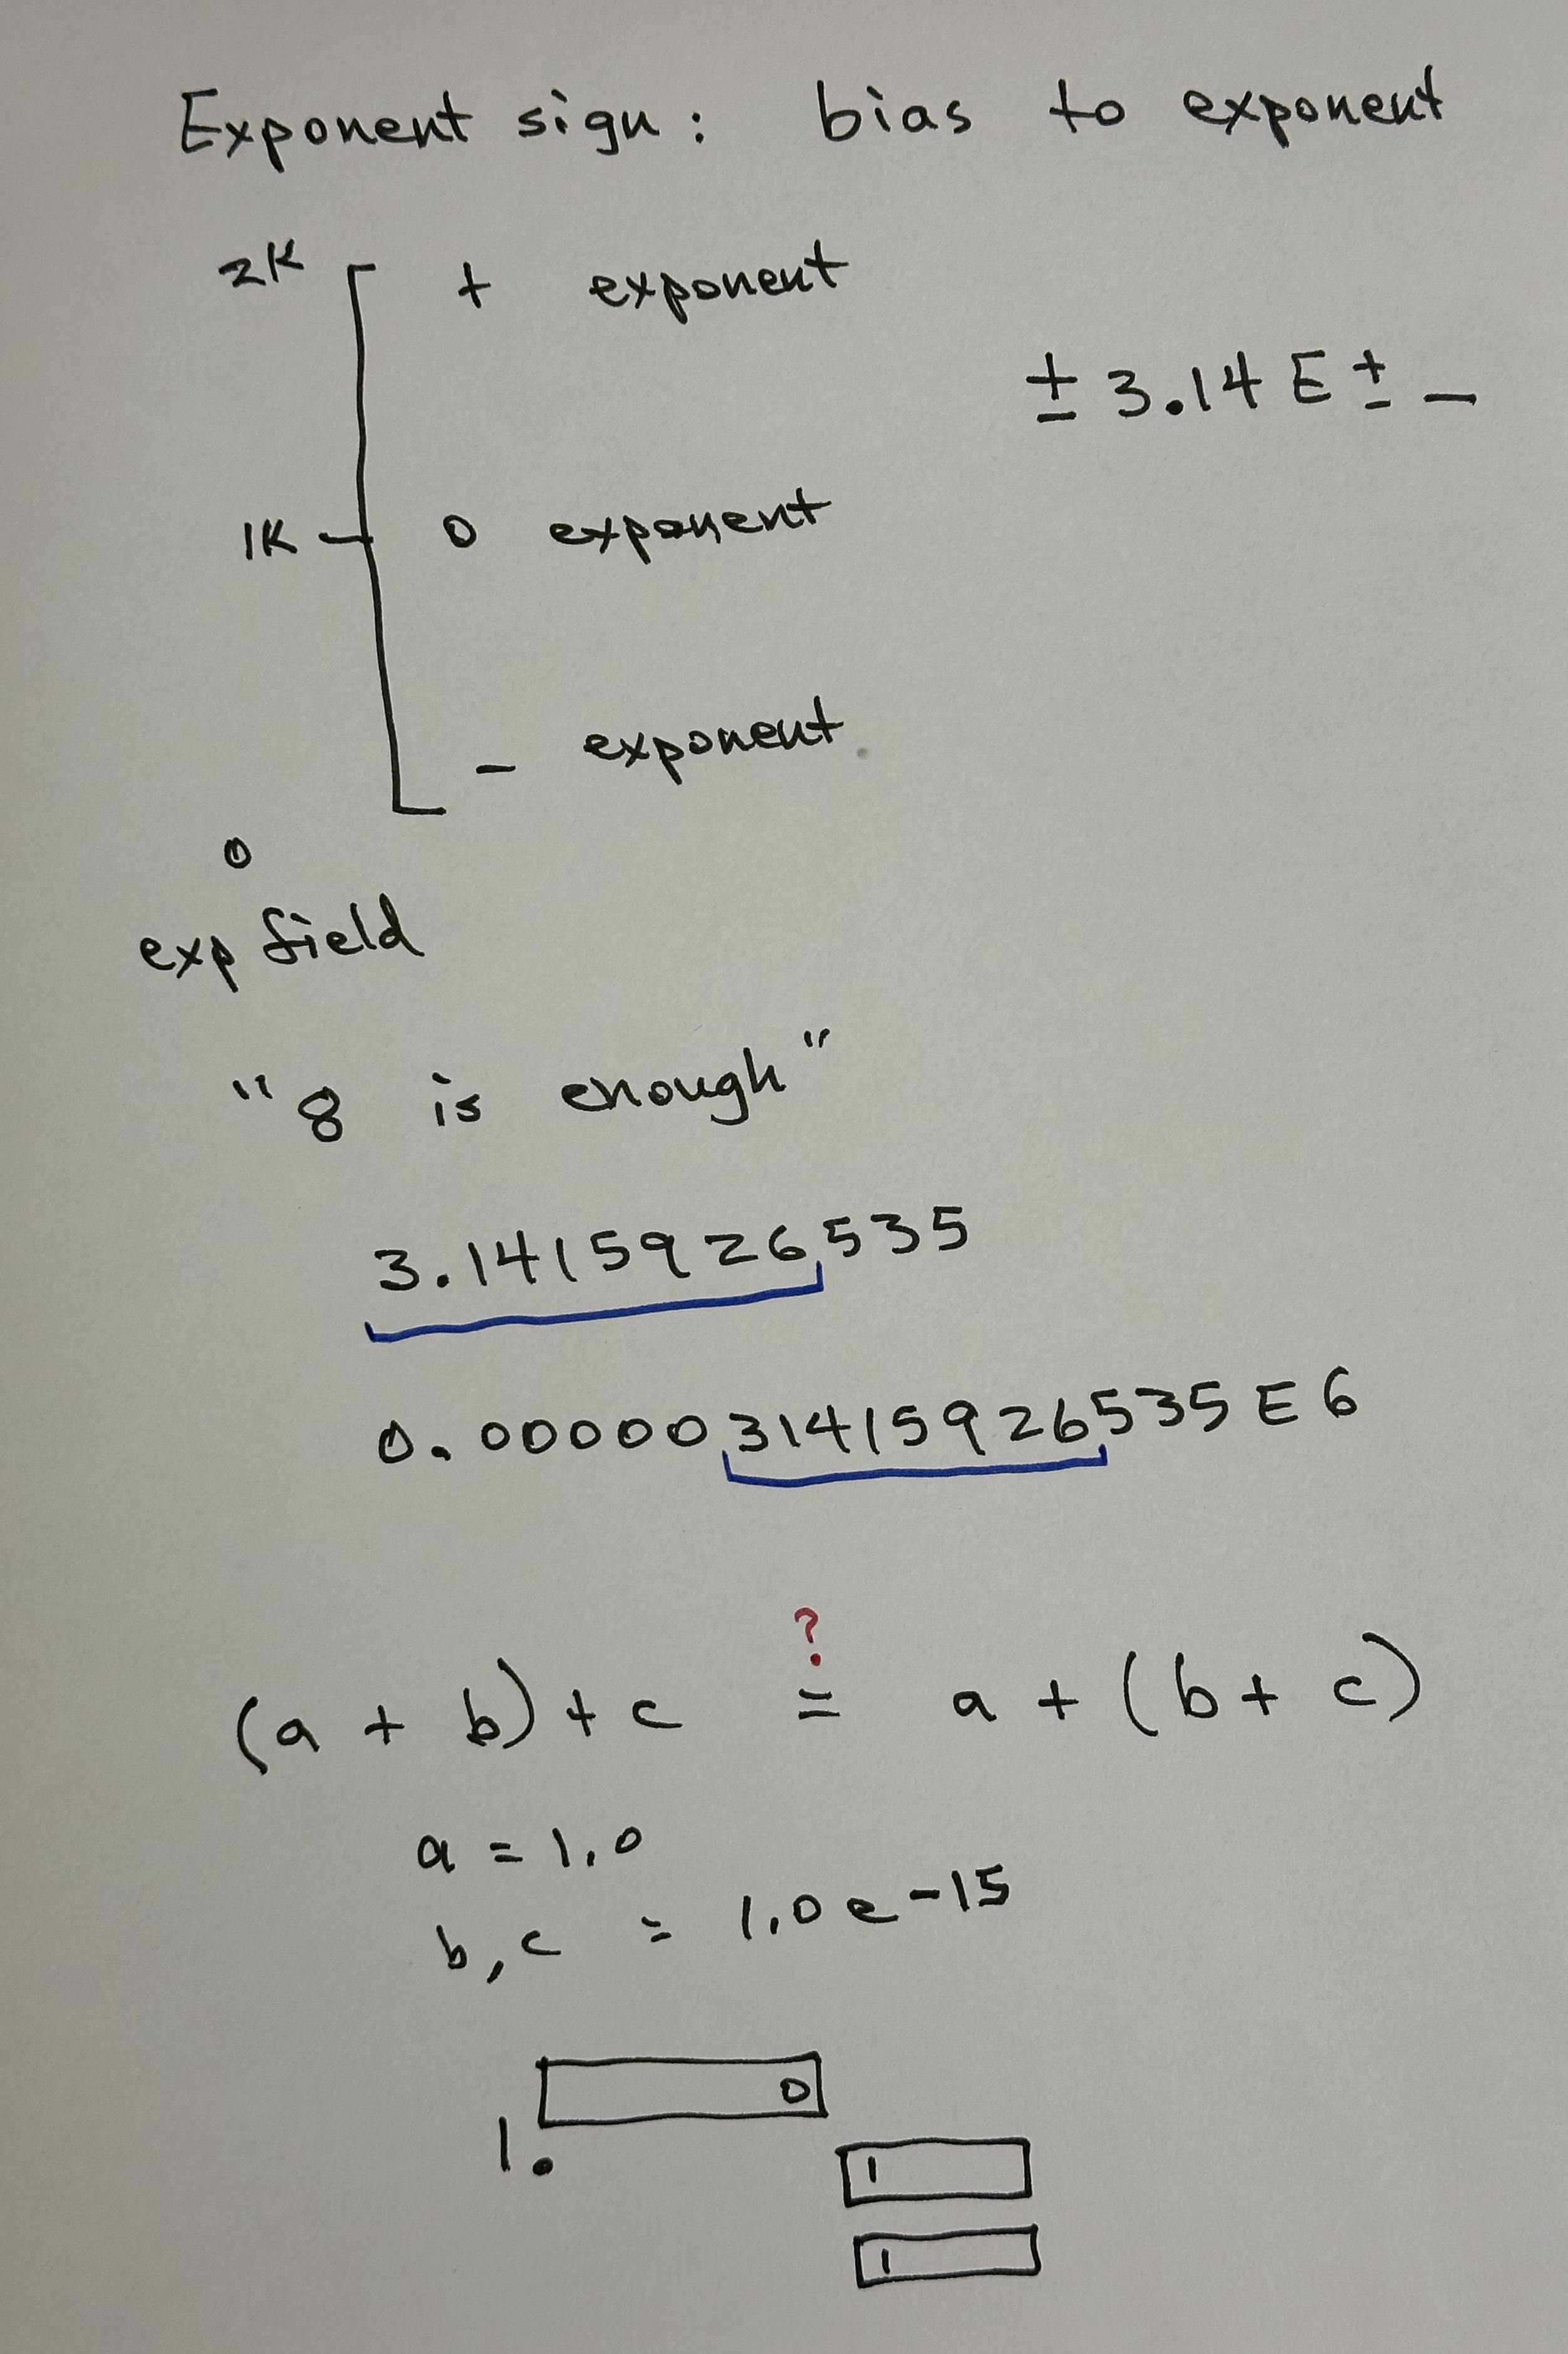 Exponent sign: bias to exponent
2K + exponent
± 3.14 E ± _
1K 0 exponent
- exponent
0
exp field
"8 is enough"
3.1415926535
0.0000031415926535 E 6
?
(a + b) + c = a + (b + c)
a = 1.0
b, c = 1.0 e-15
0
1.
1
1